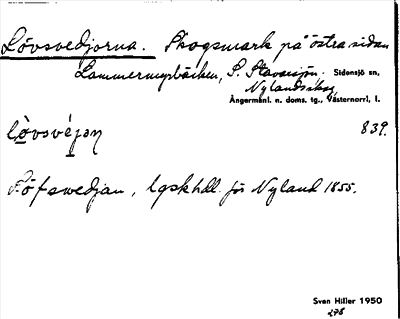 Lövsvedjorna. Skogsmark på östra sidan
Lammermyrbäcken, S. Stavarsjön. Sidensjö sn,
Nylandsskog
Ångermanl. n. doms. tg., Västernorrl. l.
839.
Löfswedjan, lgskhdl. för Nyland 1855.
Sven Hiller 1950
278